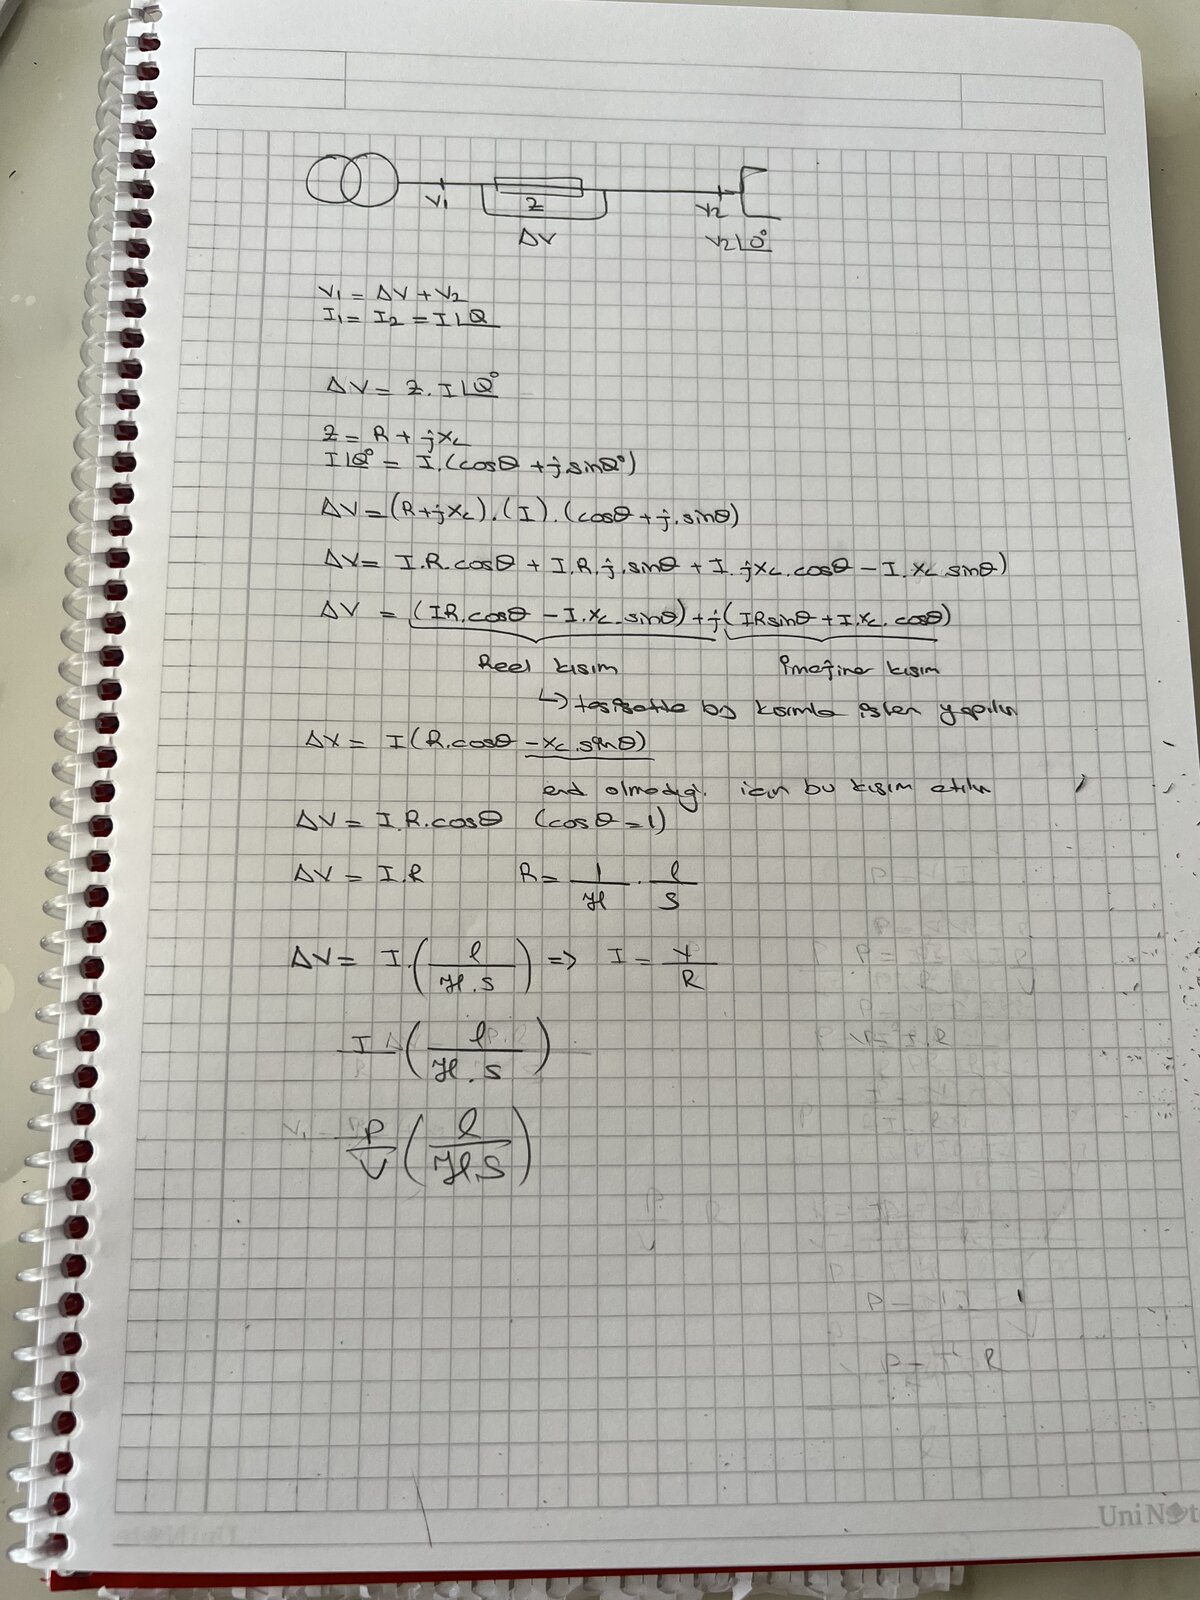 V₁
Z
V₂
ΔV
V₂∠0°
V₁ = ΔV + V₂
I₁ = I₂ = I∠Q
ΔV = Z . I∠Q°
Z = R + jX_L
I∠Q° = I.(cosθ + j.sinθ°)
ΔV = (R+jX_L).(I).(cosθ + j.sinθ)
ΔV = I.R.cosθ + I.R.j.sinθ + I.jX_L.cosθ - I.X_L.sinθ)
ΔV = (IR.cosθ - I.X_L.sinθ) + j(IRsinθ + I.X_L.cosθ)
Reel kısım imajiner kısım
↳ tesisatta bu kısımla işlem yapılır
ΔV = I(R.cosθ - X_L.sinθ)
end olmadığı için bu kısım atılır
ΔV = I.R.cosθ (cosθ = 1)
ΔV = I.R R = 1/ℋ . l/S
ΔV = I.(l/ℋ.S) => I = V/R
I (l/ℋ.S)
P/V (l/ℋ.S)
UniN